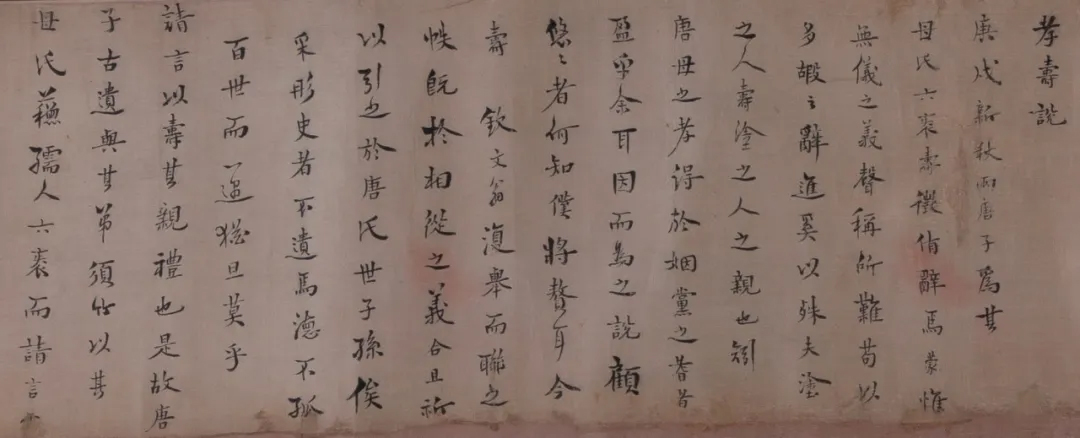 孝壽説
庚戌新秋兩唐子爲其
母氏六袠壽徵侑辭焉蒙惟
無儀之義聲稱所難苟以
多嘏之辭進奚以殊夫塗
之人壽塗之人之親也矧
唐母之孝得於姻黨之耆旨
盈乎余耳因而為之説顧
悠悠者何知僕將贅耳今
壽欽文翁復舉而聯之
帙既於相從之義合且祈
以引之於唐氏世子孫俟
采彤史者不遺焉德不孤
百世而一遇猶旦莫乎
請言以壽其親禮也是故唐
子古遺與其弟須竹以其
母氏蘓孺人六袠而請言